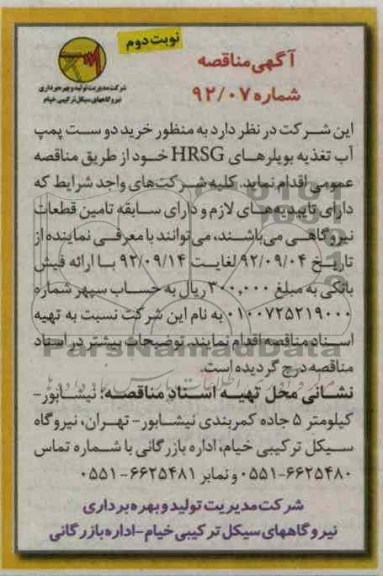 نوبت دوم
آگهی مناقصه
شماره ۹۲/۰۷
شرکت مدیریت تولید و بهره برداری
نیروگاههای سیکل ترکیبی خیام
این شرکت در نظر دارد به منظور خرید دو ست پمپ
آب تغذیه بویلرهای HRSG خود از طریق مناقصه
عمومی اقدام نماید. کلیه شرکت‌های واجد شرایط که
دارای تاییدیه‌های لازم و دارای سابقه تامین قطعات
نیروگاهی می‌باشند، می‌توانند با معرفی نماینده از
تاریخ ۹۲/۰۹/۰۴ لغایت ۹۲/۰۹/۱۴ با ارائه فیش
بانکی به مبلغ ۳۰۰,۰۰۰ ریال به حساب سپهر شماره
۰۱۰۰۷۲۵۲۱۹۰۰۰ به نام این شرکت نسبت به تهیه
اسناد مناقصه اقدام نمایند. توضیحات بیشتر در اسناد
مناقصه درج گردیده است.
ParsNamadData
نشانی محل تهیه اسناد مناقصه: نیشابور-
کیلومتر ۵ جاده کمربندی نیشابور- تهران، نیروگاه
سیکل ترکیبی خیام، اداره بازرگانی با شماره تماس
۰۵۵۱-۶۶۲۵۴۸۰ و نمابر ۰۵۵۱-۶۶۲۵۴۸۱
شرکت مدیریت تولید و بهره برداری
نیروگاههای سیکل ترکیبی خیام-اداره بازرگانی